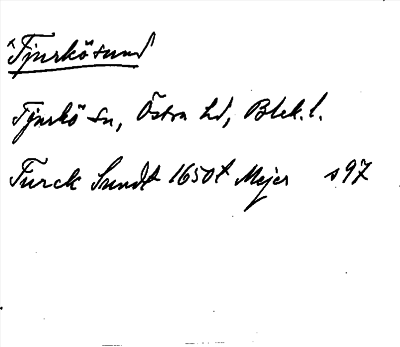 "Tjurkösund"
Tjurkö sn, Östra hd, Blek. l.
Turck Sundt 1650t Mejer s 97